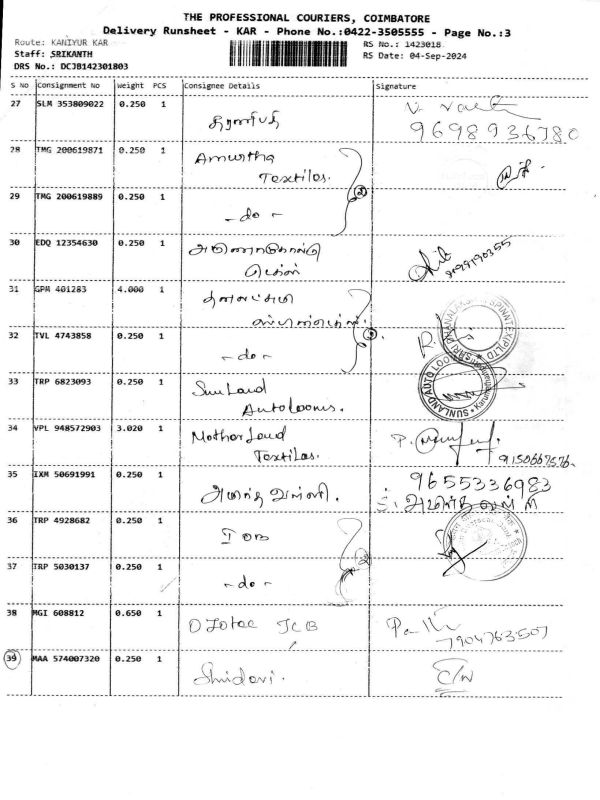 THE PROFESSIONAL COURIERS, COIMBATORE
Delivery Runsheet - KAR - Phone No.:0422-3505555 - Page No.:3
Route: KANIYUR KAR
RS No.: 1423018
Staff: SRIKANTH
RS Date: 04-Sep-2024
DRS No.: DCJB142301803
S No Consignment No Weight PCS Consignee Details Signature
27 SLM 353809022 0.250 1 தரணிபதி
9698936780
28 TMG 200619871 0.250 1 Amurtha
Textiles.
29 TMG 200619889 0.250 1 - do -
30 EDQ 12354630 0.250 1
31 GPM 401283 4.000 1 தனலட்சுமி
32 TVL 4743858 0.250 1 - do -
33 TRP 6823093 0.250 1 SunLand
Autolooms.
34 VPL 948572903 3.020 1 MotherLand
Textiles. 9150667576
35 IXM 50691991 0.250 1 அமிர்தவள்ளி. 9655336983
36 TRP 4928682 0.250 1 IOB
37 TRP 5030137 0.250 1 - do -
38 MGI 608812 0.650 1 JCB
7904763507
39 MAA 574007320 0.250 1 C/N